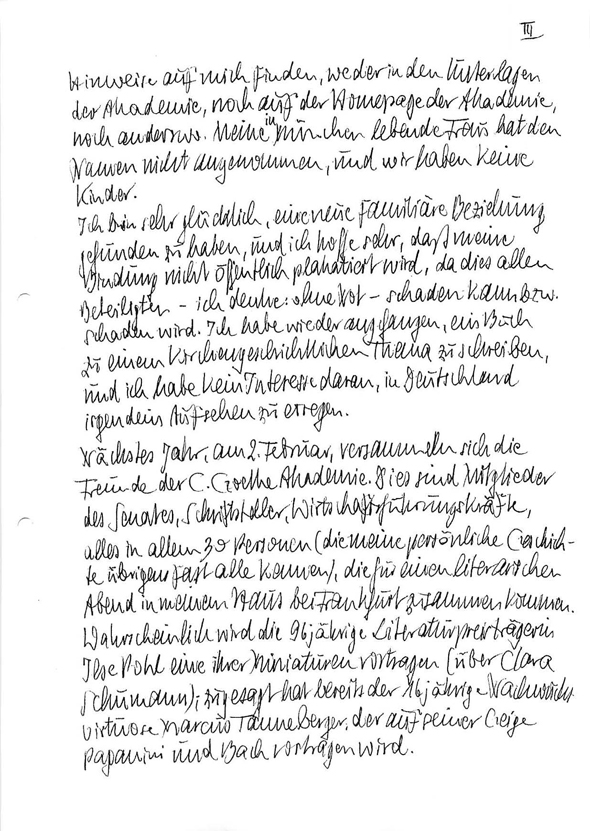 III
Hinweise auf mich finden, weder in den Unterlagen
der Akademie, noch auf der Homepage der Akademie,
noch anderswo. Meine in München lebende Frau hat den
Namen nicht angenommen, und wir haben keine
Kinder.
Ich bin sehr glücklich, eine neue familiäre Beziehung
gefunden zu haben, und ich hoffe sehr, daß meine
Bindung nicht öffentlich plakatiert wird, da dies allen
Beteiligten – ich denke: ohne Not – schaden kann bzw.
schaden wird. Ich habe wieder angefangen, ein Buch
zu einem kirchengeschichtlichen Thema zu schreiben,
und ich habe kein Interesse daran, in Deutschland
irgendein Aufsehen zu erregen.
Nächstes Jahr, am 2. Februar, versammeln sich die
Freunde der C. Goethe Akademie. Dies sind Mitglieder
des Senates, Schriftsteller, Wirtschaftsführungskräfte,
alles in allem 30 Personen (die meine persönliche Geschich-
te übrigens fast alle kennen), die für einen literarischen
Abend in meinem Haus bei Frankfurt zusammenkommen.
Wahrscheinlich wird die 96jährige Literaturpreisträgerin
Ilse Pohl eine ihrer Miniaturen vortragen (über Clara
Schumann); zugesagt hat bereits der 16jährige Nachwuchs-
virtuose Marcus Tanneberger, der auf seiner Geige
Paganini und Bach vortragen wird.